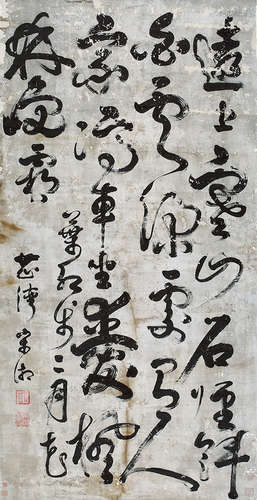 遠上寒山石徑斜
白雲深處有人
家停車坐愛楓
林晚霜
葉紅於二月花
芷灣宋湘